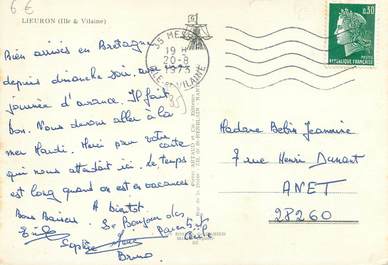 6 €
LIEURON (Ille & Vilaine)
35 MESSAC
19 H
20-8
1973
ILLE ET VILAINE
0,30
REPUBLIQUE FRANCAISE
Bien arrivés en Bretagne
depuis dimanche soir, avec
journée d'avance. Il fait
bon. Nous devons aller à la
mer Mardi. Merci pour votre carte
qui nous attendait ici. Le temps
est long quand on est en vacances
Bons Baisers. A bientôt.
Le Bonjour des
parents
Sophie
Bruno
35
Madame Bebin Jeannine
7 rue Henri Dunant
ANET
28260